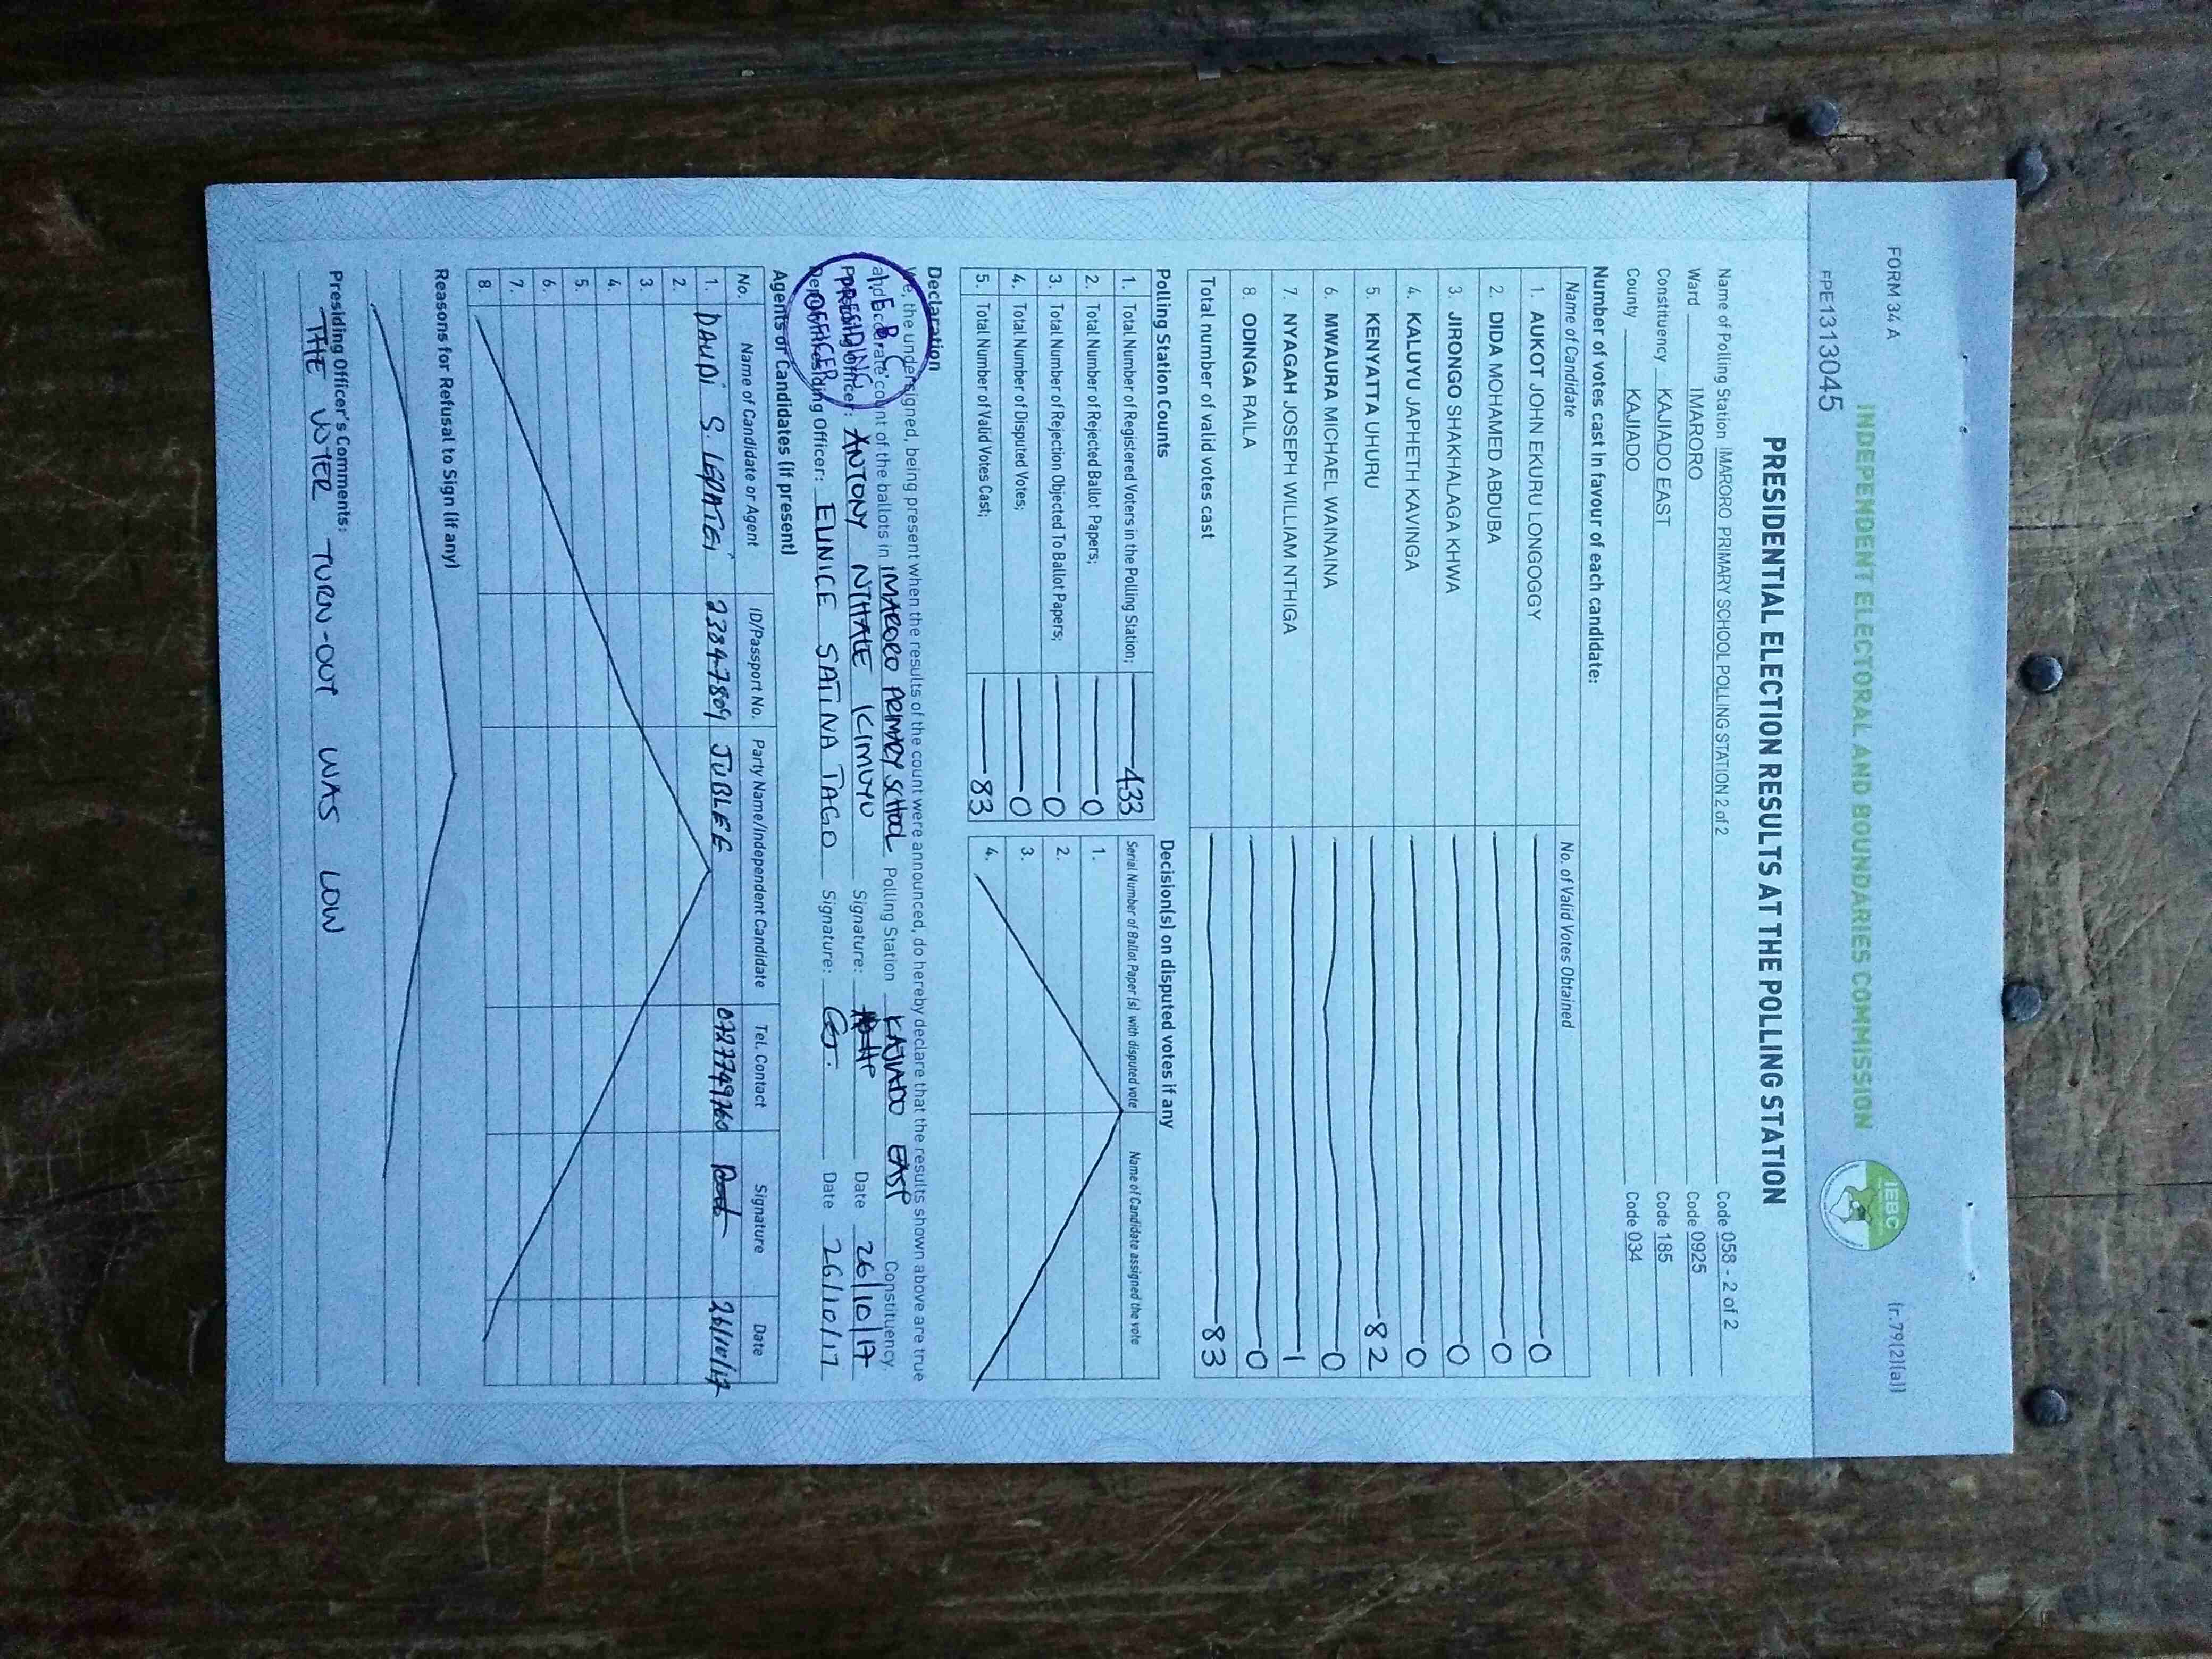 FORM 34 A
(r.79(2)(a))
INDEPENDENT ELECTORAL AND BOUNDARIES COMMISSION
IEBC
FPE1313045
PRESIDENTIAL ELECTION RESULTS AT THE POLLING STATION
Name of Polling Station IMARORO PRIMARY SCHOOL POLLING STATION 2 of 2 Code 058 - 2 of 2
Ward IMARORO Code 0925
Constituency KAJIADO EAST Code 185
County KAJIADO Code 034
Number of votes cast in favour of each candidate:
Name of Candidate No. of Valid Votes Obtained
1. AUKOT JOHN EKURU LONGOGGY 0
2. DIDA MOHAMED ABDUBA 0
3. JIRONGO SHAKHALAGA KHWA 0
4. KALUYU JAPHETH KAVINGA 0
5 KENYATTA UHURU 82
6. MWAURA MICHAEL WAINAINA 0
7. NYAGAH JOSEPH WILLIAM NTHIGA 1
8. ODINGA RAILA 0
Total number of valid votes cast 83
Polling Station Counts
1. Total Number of Registered Voters in the Polling Station; 433
2. Total Number of Rejected Ballot Papers; 0
3. Total Number of Rejection Objected To Ballot Papers; 0
4. Total Number of Disputed Votes; 0
5. Total Number of Valid Votes Cast; 83
Decision(s) on disputed votes if any
Serial Number of Ballot Paper(s) with disputed vote Name of Candidate assigned the vote
1.
2.
3.
4.
Declaration
We, the undersigned, being present when the results of the count were announced, do hereby declare that the results shown above are true
and accurate count of the ballots in IMARORO PRIMARY SCHOOL Polling Station KAJIADO EAST Constituency.
Presiding Officer: ANTONY NTHALE KIMUYU Signature: Date 26/10/17
Deputy Presiding Officer: EUNICE SATINA TAGO Signature: Date 26/10/17
I.E.B.C.
PRESIDING
OFFICER
Agents or Candidates (if present)
No. Name of Candidate or Agent ID/Passport No. Party Name/Independent Candidate Tel. Contact Signature Date
1. DAUDI S. 23847809 JUBLEE 0727749760 26/10/17
2.
3.
4.
5.
6.
7.
8.
Reasons for Refusal to Sign (if any)
Presiding Officer's Comments:
THE VOTER TURN-OUT WAS LOW